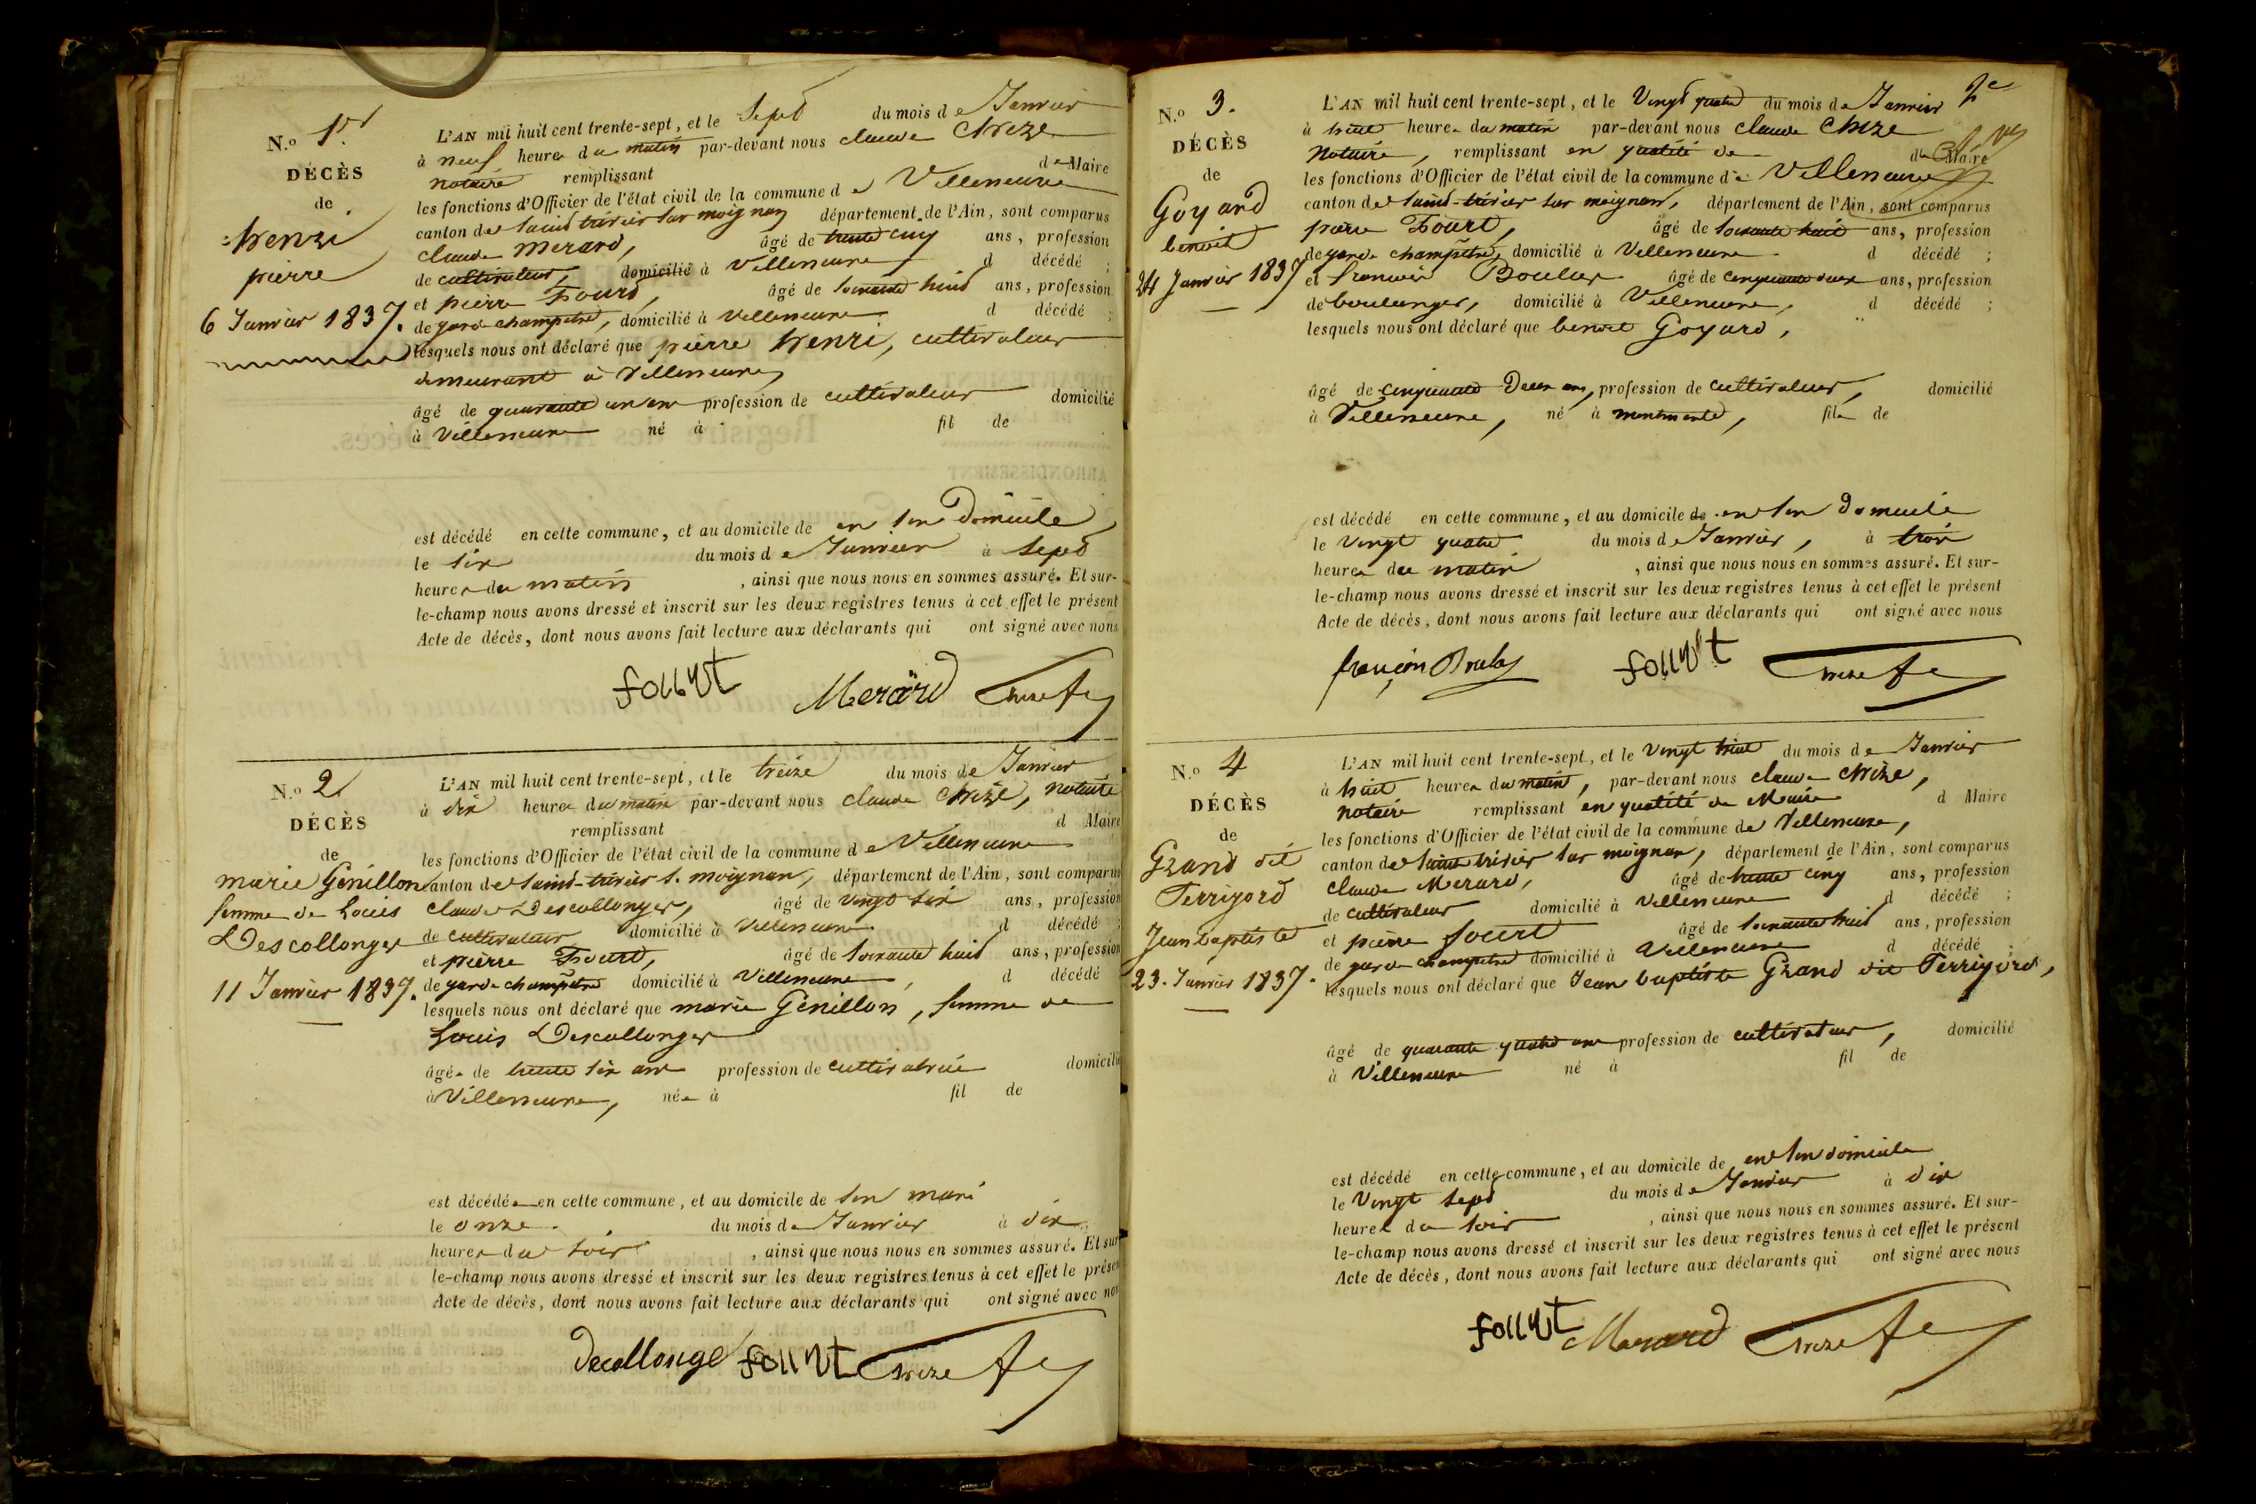 N.o 1er
DÉCÈS
de
henri
pierre
6 Janvier 1837.
L'AN mil huit cent trente-sept, et le Sept du mois de Janvier
à neuf heures du matin par-devant nous claude Chize
notaire remplissant de Maire
les fonctions d'Officier de l'état civil de la commune de Villeneuve
canton de saint trivier sur moignan département de l'Ain, sont comparus
claude merard, âgé de trente cinq ans, profession
de cultivateur, domicilié à Villeneuve d décédé ;
et pierre Fourt, âgé de soixante huit ans, profession
de garde champêtre, domicilié à Villeneuve d décédé ;
lesquels nous ont déclaré que pierre henri, cultivateur
demeurant à Villeneuve,
âgé de quarante un ans profession de cultivateur domicilié
à Villeneuve né à fil de
est décédé en cette commune, et au domicile de en son Domicile
le six du mois de Janvier à Sept
heures du matin , ainsi que nous nous en sommes assuré. Et sur-
le-champ nous avons dressé et inscrit sur les deux registres tenus à cet effet le présent
Acte de décès, dont nous avons fait lecture aux déclarants qui ont signé avec nous
Merard Chize
N.o 2
DÉCÈS
de
marie Génillon
femme de Louis
Descollonges
11 Janvier 1837.
L'AN mil huit cent trente-sept, et le treize du mois de Janvier
à dix heures du matin par-devant nous claude Chize, notaire
remplissant d Maire
les fonctions d'Officier de l'état civil de la commune de Villeneuve
canton de saint-trivier s. moignan, département de l'Ain, sont comparus
claude Descollonges, âgé de vingt six ans, profession
de cultivateur domicilié à Villeneuve d décédé ;
et pierre Fourt, âgé de soixante huit ans, profession
de garde champêtre domicilié à Villeneuve, d décédé
lesquels nous ont déclaré que marie Génillon, femme de
Louis Descollonges
âgée de trente six ans profession de cultivatrice domicilié
à Villeneuve, née à fil de
est décédée en cette commune, et au domicile de son mari
le onze du mois de Janvier à dix
heures du soir , ainsi que nous nous en sommes assuré. Et sur
le-champ nous avons dressé et inscrit sur les deux registres tenus à cet effet le présen
Acte de décès, dont nous avons fait lecture aux déclarants qui ont signé avec nou
Decollonge Chize
2e
N.o 3.
DÉCÈS
de
Goyard
benoit
24 Janvier 1837
L'AN mil huit cent trente-sept, et le Vingt quatre du mois de Janvier
à huit heures du matin par-devant nous claude Chize
Notaire, remplissant en qualité de de Maire
les fonctions d'Officier de l'état civil de la commune de Villeneuve
canton de saint-trivier sur moignan, département de l'Ain, sont comparus
pierre Fourt, âgé de soixante huit ans, profession
de garde champêtre, domicilié à Villeneuve d décédé ;
et françois Boulas âgé de cinquante deux ans, profession
de boulanger, domicilié à Villeneuve, d décédé ;
lesquels nous ont déclaré que benoit Goyard,
âgé de cinquante Deux ans, profession de cultivateur, domicilié
à Villeneuve, né à fils de
est décédé en cette commune, et au domicile de en son Domicile
le Vingt quatre du mois de Janvier, à trois
heures du matin , ainsi que nous nous en sommes assuré. Et sur-
le-champ nous avons dressé et inscrit sur les deux registres tenus à cet effet le présent
Acte de décès, dont nous avons fait lecture aux déclarants qui ont signé avec nous
françois Chize
N.o 4
DÉCÈS
de
Grand dit
Perrigord
Jean baptiste
23. Janvier 1837.
L'AN mil huit cent trente-sept, et le Vingt huit du mois de Janvier
à huit heures du matin, par-devant nous claude Chize,
notaire remplissant en qualité de Maire d Maire
les fonctions d'Officier de l'état civil de la commune de Villeneuve,
canton de saint trivier sur moignan, département de l'Ain, sont comparus
claude Merard, âgé de trente cinq ans, profession
de cultivateur domicilié à Villeneuve d décédé ;
et pierre fourt âgé de soixante huit ans, profession
de garde champetre domicilié à Villeneuve d décédé ;
lesquels nous ont déclaré que Jean baptiste Grand dit Perrigord,
âgé de quarante quatre ans profession de cultivateur, domicilié
à Villeneuve né à fil de
est décédé en cette commune, et au domicile de en son domicile
le Vingt sept du mois de Janvier à dix
heures du soir , ainsi que nous nous en sommes assuré. Et sur-
le-champ nous avons dressé et inscrit sur les deux registres tenus à cet effet le présent
Acte de décès, dont nous avons fait lecture aux déclarants qui ont signé avec nous
Merard Chize